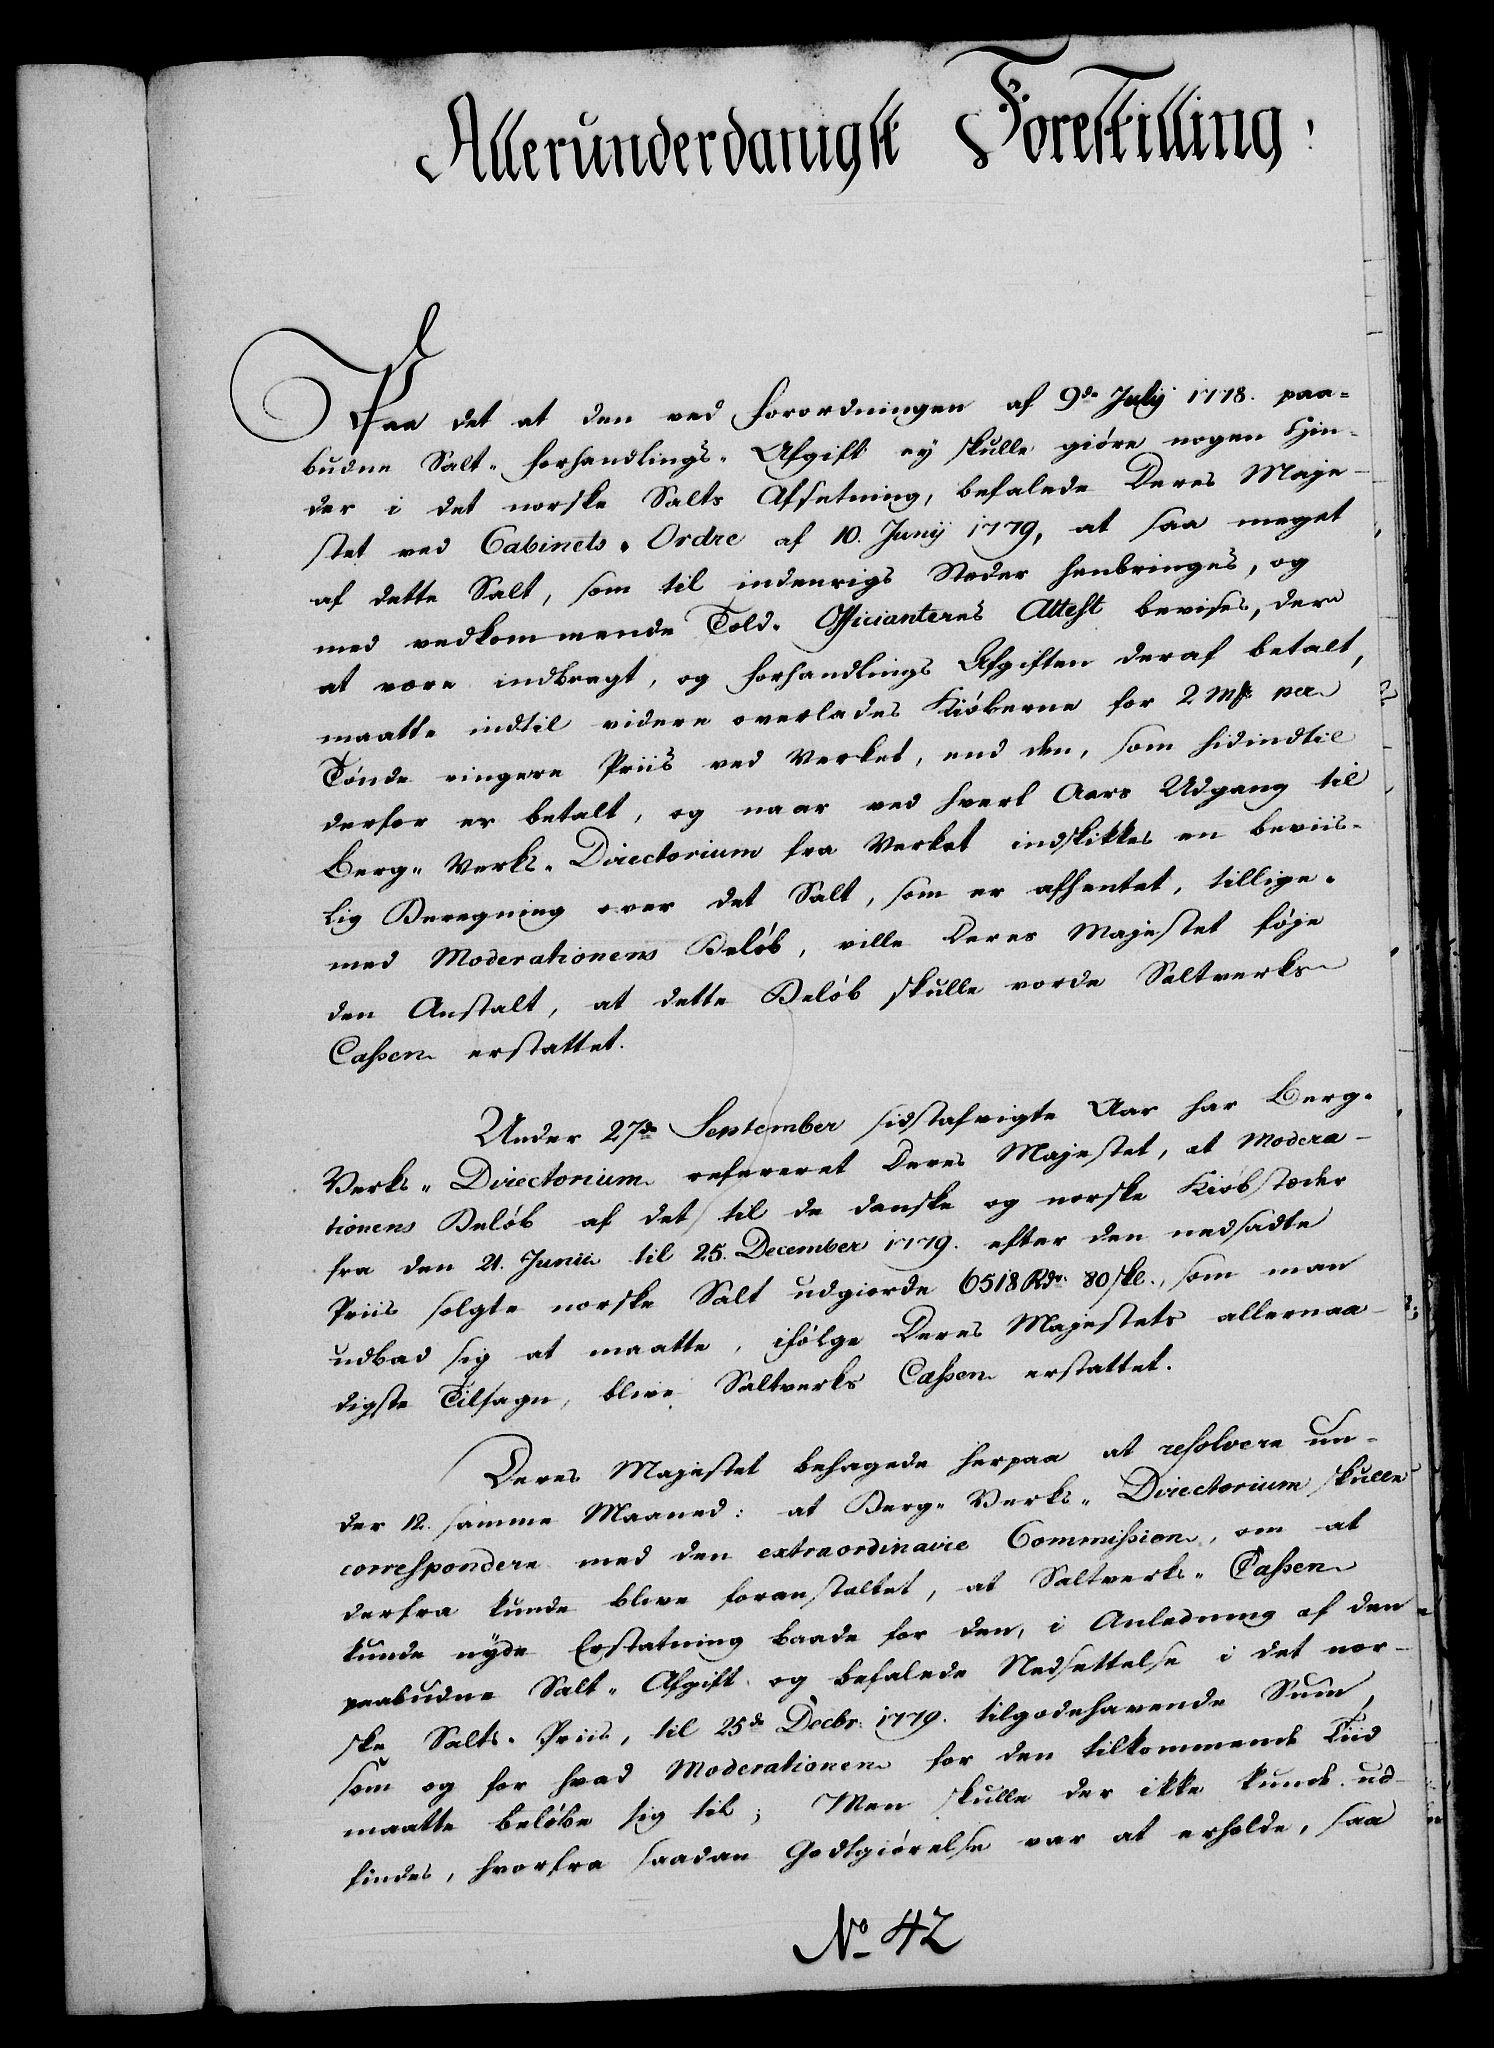 Allerunderdanigst Forestilling:
Paa det at den ved Forordningen af 9de Julij 1778. paa-
budne Salt-Forhandlings-Afgift ey skulle giöre nogen Hin-
der i det norske Salts Afsetning, befalede Deres Maje-
stet ved Cabinets-Ordre af 10. Junij 1779, at saa meget
af dette Salt, som til indenrigs Steder henbringes, og
med vedkommende Told-Officianteres Attest bevises, der
at være indbragt, og Forhandlings Afgiften deraf betalt,
maatte indtil videre overlades Kiöberne for 2 mk per
Tönde ringere Priis ved Verket, end den, som hidindtil
derfor er betalt, og naar ved hvert Aars Udgang til
Berg-Verks-Directorium fra Verket indskikkes en beviis-
lig Beregning over det Salt, som er afhentet, tillige-
med Moderationens Belöb, ville Deres Majestet föje
den Anstalt, at dette Belöb skulle vorde Saltverks
Cassen erstattet.
Under 27de September sidstafvigte Aar har Berg-
Verks-Directorium refereret Deres Majestet, at Modera-
tionens Belöb af det til de danske og norske Kiöbstæder
fra den 21. Junii til 25. December 1779. efter den nedsadte
Priis solgte norske Salt udgiorde 6518 Rdr. 80 skl., som man
udbad sig at maatte, ifölge Deres Majestets allernaa-
digste Tilsagn, blive Saltverks Cassen erstattet.
Deres Majestet behagede herpaa at resolvere un-
der 12. samme Maaned: at Berg-Verks-Directorium skulle
correspondere med den extraordinaire Commission, om at
derfra kunde blive foranstaltet, at Saltverks-Cassen
kunde nyde Erstatning baade for den, i Anledning af den
paabudne Salt-Afgift og befalede Nedsettelse i det nor-
ske Salts-Priis, til 25de Decbr. 1779. tilgodehavende Sum,
som og for hvad Moderationen for den tilkommende Tiid
maatte belöbe sig til; Men skulle der ikke kunde ud-
findes, hvorfra saadan Godtgiörelse var at erholde, saa
No 42